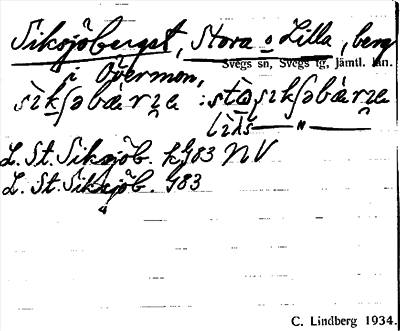 Siksjöberget, Stora o Lilla, berg
i Övermon,
Svegs sn, Svegs tg, Jämtl. län.
sìkʃəbærɪɛ : stɷsɪkʃəbærɪɛ
lìdṣ — " —
L. St. Siksjöb. kg83 NV
L. St. Siksjöb. g83
C. Lindberg 1934.